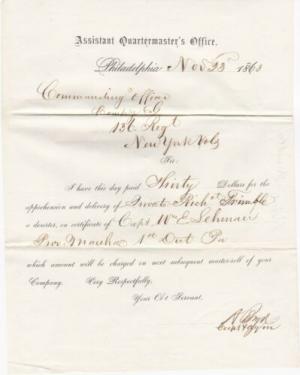 Assistant Quartermaster's Office.
Philadelphia Nov 23 1863
Commanding Officer
Comp G
Regt
New York Vols
Sir:
I have this day paid Thirty Dollars for the
apprehension and delivery of Privat Rich^d Trimble
a deserter, on certificate of Capt W^m E Lehman
Pro. Marshal 1st Dist Pa
which amount will be charged on next subsequent muster-roll of your
Company. Very Respectfully,
Your Ob't Servant,
Boyd
Capt